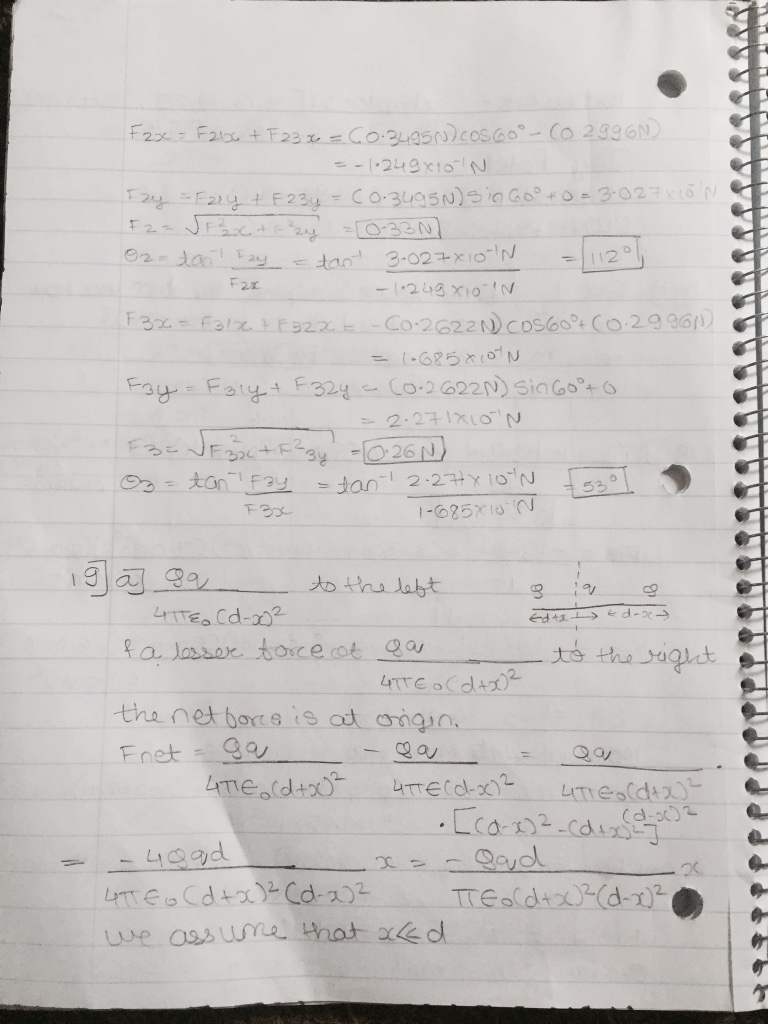 F2x = F21x + F23x = (0.3495N)cos60° - (0.2996N)
= -1.249x10⁻¹N
F2y = F21y + F23y = (0.3495N)sin60° + 0 = 3.027x10⁻¹N
F2 = √F²2x + F²2y = 0.33N
θ2 = tan⁻¹ F2y/F2x = tan⁻¹ 3.027x10⁻¹N/-1.249x10⁻¹N = 112°
F3x = F31x + F32x = -(0.2622N)cos60° + (0.2996N)
= 1.685x10⁻¹N
F3y = F31y + F32y = (0.2622N)sin60° + 0
= 2.271x10⁻¹N
F3 = √F²3x + F²3y = 0.26N
θ3 = tan⁻¹ F3y/F3x = tan⁻¹ 2.271x10⁻¹N/1.685x10⁻¹N = 53°
19] a] Qq/4πε₀(d-x)² to the left
Q q Q
←d+x→ ←d-x→
& a lesser force of Qq/4πε₀(d+x)² to the right
the net force is at origin.
Fnet = Qq/4πε₀(d+x)² - Qq/4πε(d-x)² = Qq/4πε₀(d+x)²(d-x)² ·
· [(d-x)² - (d+x)²]
= -4Qqd/4πε₀(d+x)²(d-x)² x = -Qqd/πε₀(d+x)²(d-x)² x
we assume that x<<d